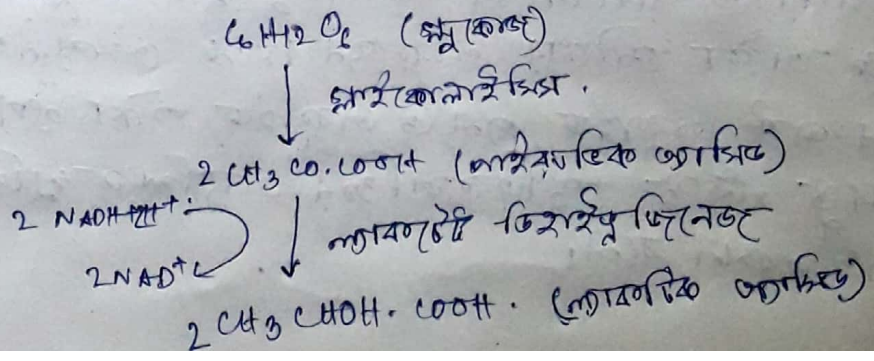 C6H12O6 (গ্লুকোজ)
গ্লাইকোলাইসিস.
2 CH3 CO.COOH (পাইরুভিক অ্যাসিড)
2 NADH+2H+
ল্যাকটেট ডিহাইড্রোজিনেজ
2NAD+
2 CH3 CHOH. COOH. (ল্যাকটিক অ্যাসিড)